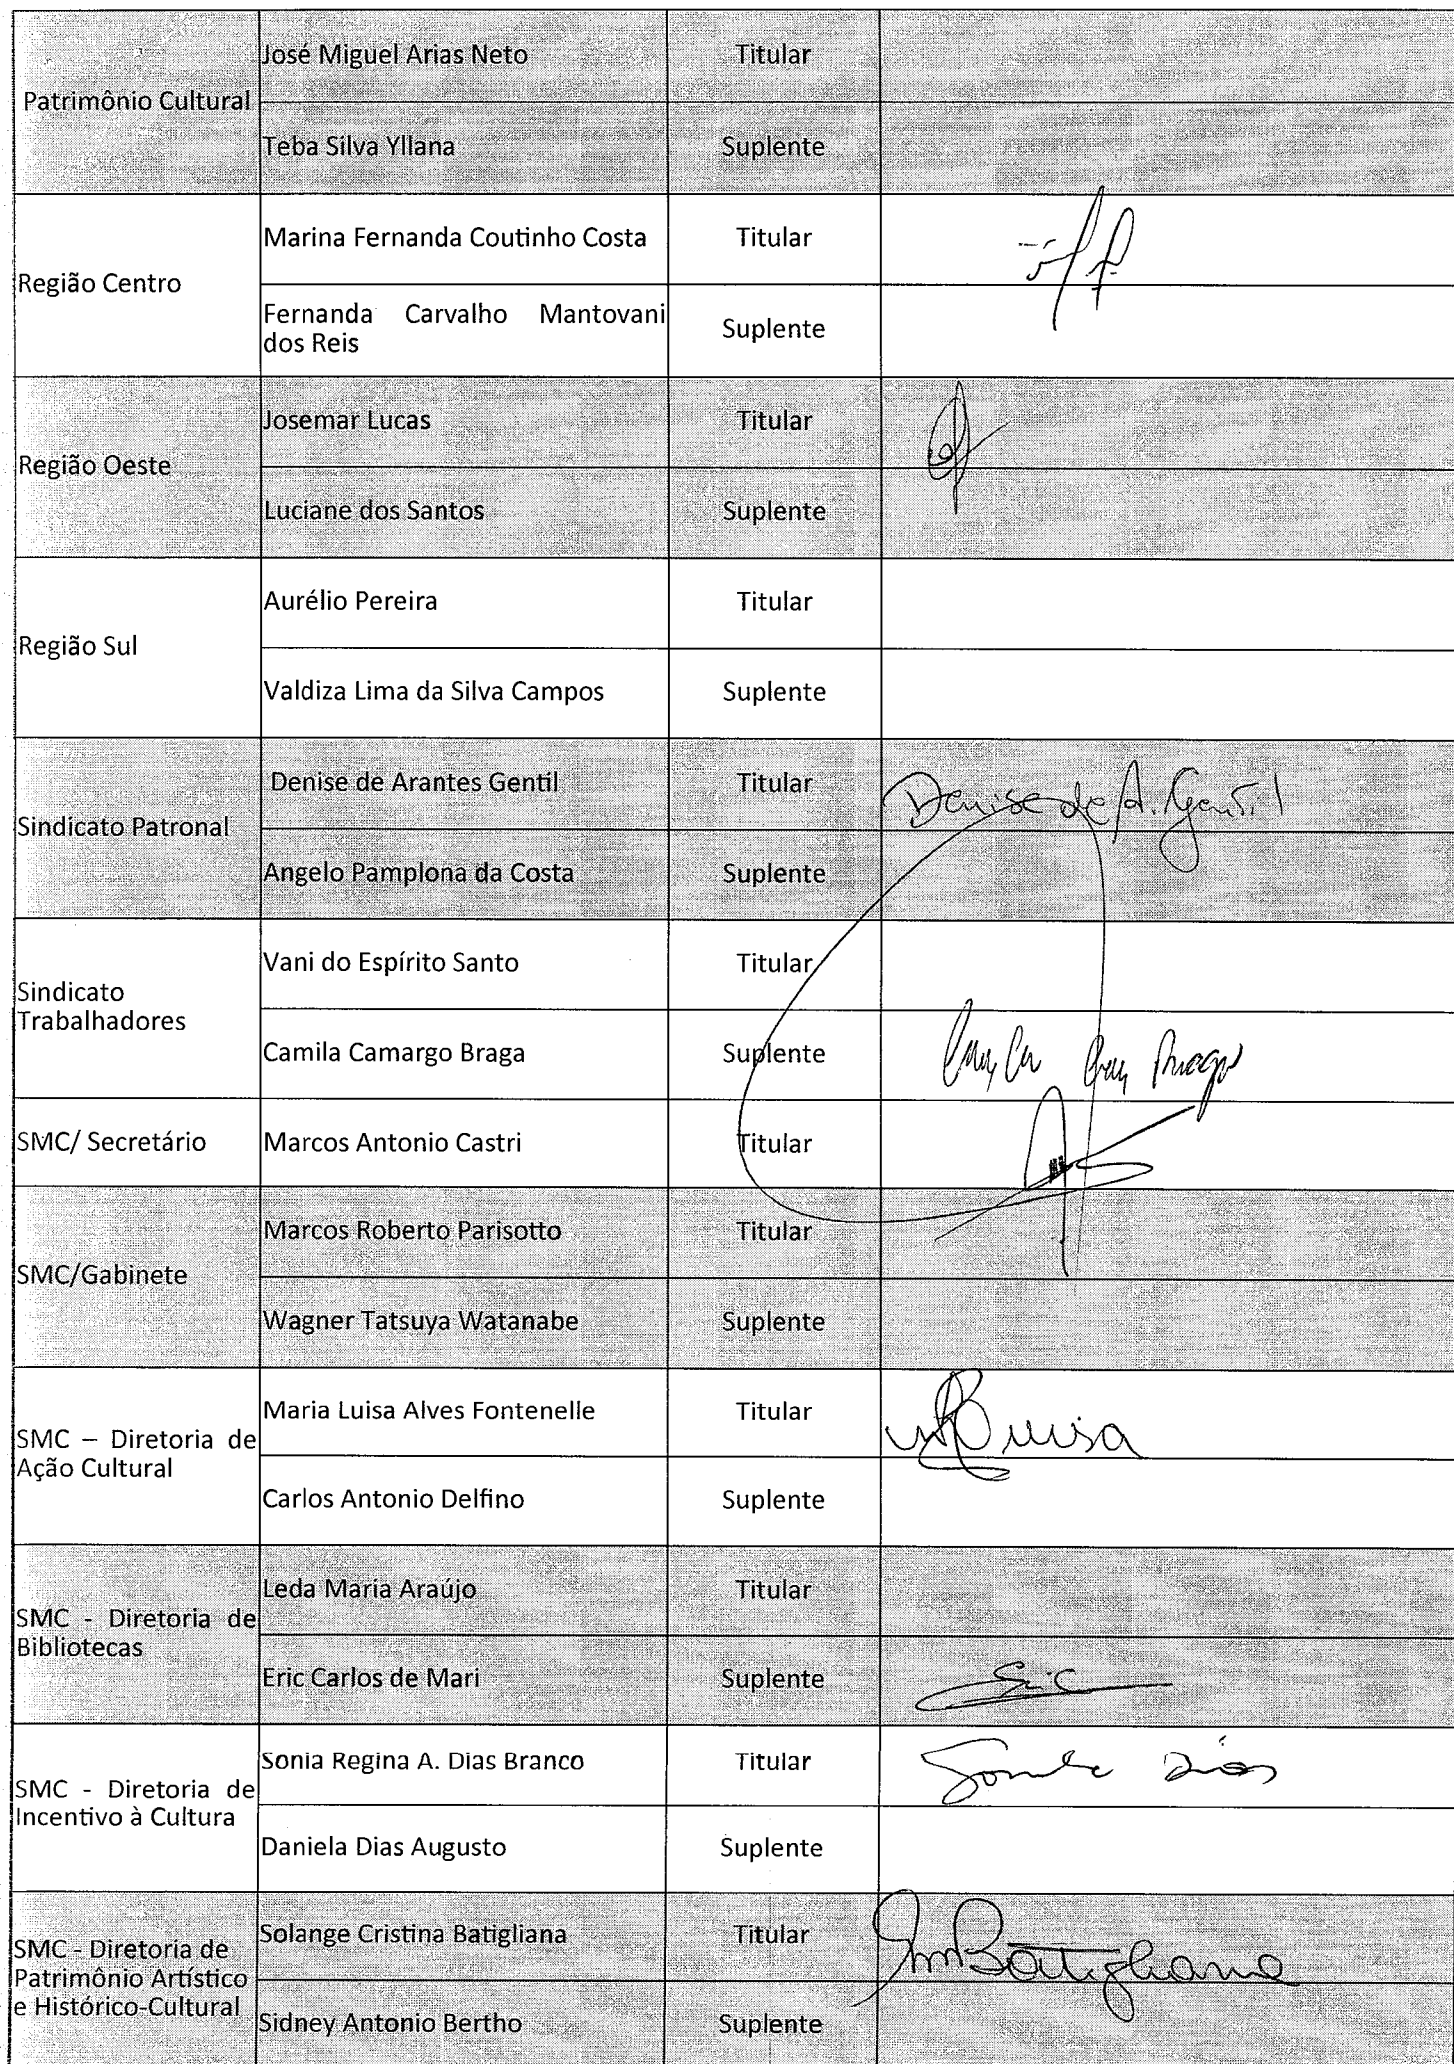 Patrimônio Cultural
José Miguel Arias Neto Titular
Teba Silva Yllana Suplente
Região Centro
Marina Fernanda Coutinho Costa Titular
Fernanda Carvalho Mantovani
dos Reis
Suplente
Região Oeste
Josemar Lucas Titular
Luciane dos Santos Suplente
Região Sul
Aurélio Pereira Titular
Valdiza Lima da Silva Campos Suplente
Sindicato Patronal
Denise de Arantes Gentil Titular Denise de A. Gentil
Angelo Pamplona da Costa Suplente
Sindicato
Trabalhadores
Vani do Espírito Santo Titular
Camila Camargo Braga Suplente
SMC/ Secretário
Marcos Antonio Castri Titular
SMC/Gabinete
Marcos Roberto Parisotto Titular
Wagner Tatsuya Watanabe Suplente
SMC – Diretoria de
Ação Cultural
Maria Luisa Alves Fontenelle Titular
Carlos Antonio Delfino Suplente
SMC - Diretoria de
Bibliotecas
Leda Maria Araújo Titular
Eric Carlos de Mari Suplente Eric
SMC - Diretoria de
Incentivo à Cultura
Sonia Regina A. Dias Branco Titular Sonia Dias
Daniela Dias Augusto Suplente
SMC - Diretoria de
Patrimônio Artístico
e Histórico-Cultural
Solange Cristina Batigliana Titular Batigliana
Sidney Antonio Bertho Suplente